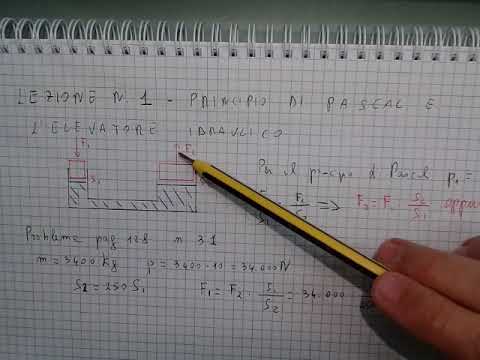 LEZIONE N. 1 - PRINCIPIO DI PASCAL E
L'ELEVATORE IDRAULICO
F₁ F₂
S₁
Per il principio di Pascal p₁ =
F₁ => F₂ = F₁ S₂/S₁ oppure
Problema pag 128 n 31
m = 3400 kg p = 3400 · 10 = 34.000 N
S2 = 250 S₁ F₁ = F₂ · S₁/S₂ = 34.000